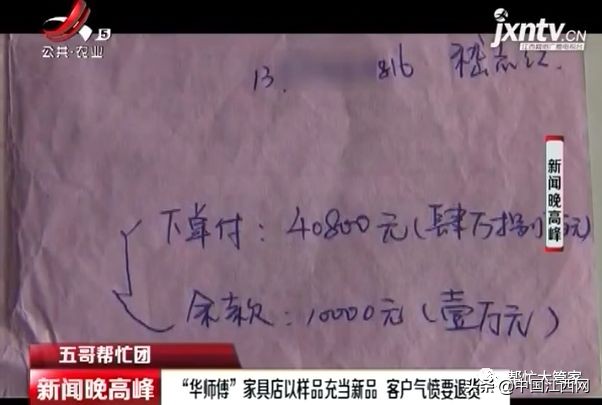 5
公共·农业
jxntv.CN
江西网络广播电视台
13. 816
新闻晚高峰
下单付：40800元（肆万捌佰元）
余款：10000元（壹万元）
五哥帮忙团
新闻晚高峰
“华师傅”家具店以样品充当新品 客户气愤要退货
帮忙大管家
头条@中国江西网